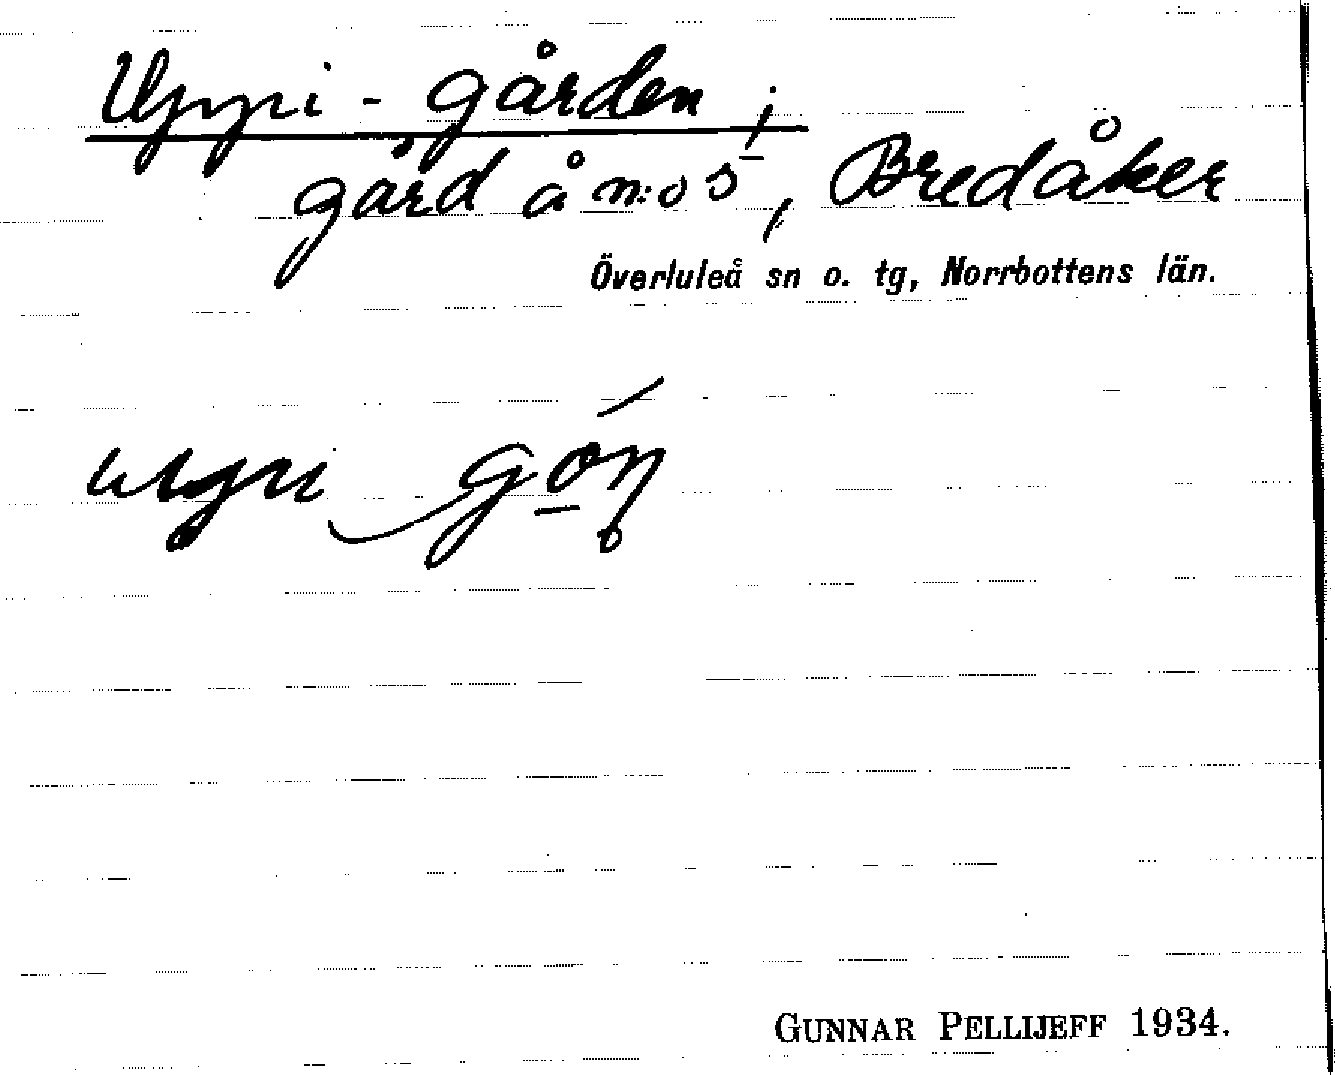 Uppi-gården;
gård å n:o 5, Bredåker
Överluleå sn o. tg, Norrbottens län.
GUNNAR PELLIJEFF 1934.